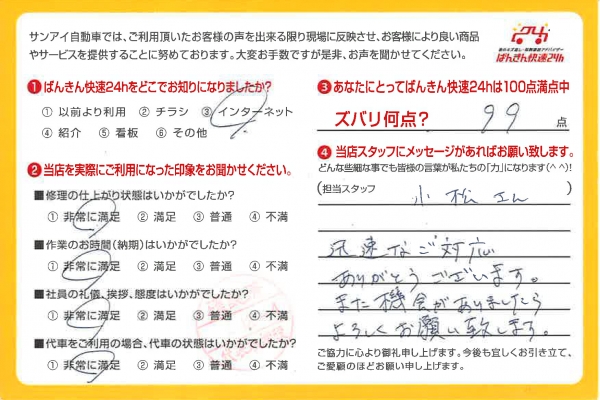 サンアイ自動車では、ご利用頂いたお客様の声を出来る限り現場に反映させ、お客様により良い商品
やサービスを提供することに努めております。大変お手数ですが是非、お声を聞かせてください。
ばんきん快速24h
❶ばんきん快速24hをどこでお知りになりましたか?
① 以前より利用 ② チラシ ③ インターネット
④ 紹介 ⑤ 看板 ⑥ その他
❷当店を実際にご利用になった印象をお聞かせください。
■修理の仕上がり状態はいかがでしたか?
① 非常に満足 ② 満足 ③ 普通 ④ 不満
■作業のお時間(納期)はいかがでしたか?
① 非常に満足 ② 満足 ③ 普通 ④ 不満
■社員の礼儀、挨拶、態度はいかがでしたか?
① 非常に満足 ② 満足 ③ 普通 ④ 不満
■代車をご利用の場合、代車の状態はいかがでしたか?
① 非常に満足 ② 満足 ③ 普通 ④ 不満
❸あなたにとってばんきん快速24hは100点満点中
ズバリ何点? 99 点
❹当店スタッフにメッセージがあればお願い致します。
どんな些細な事でも皆様の言葉が私たちの「力」になります(^^)!
(担当スタッフ 小松さん )
迅速なご対応
ありがとうございます。
また機会がありましたら
よろしくお願い致します。
ご協力に心より御礼申し上げます。今後も宜しくお引き立て、
ご愛顧のほどお願い申し上げます。